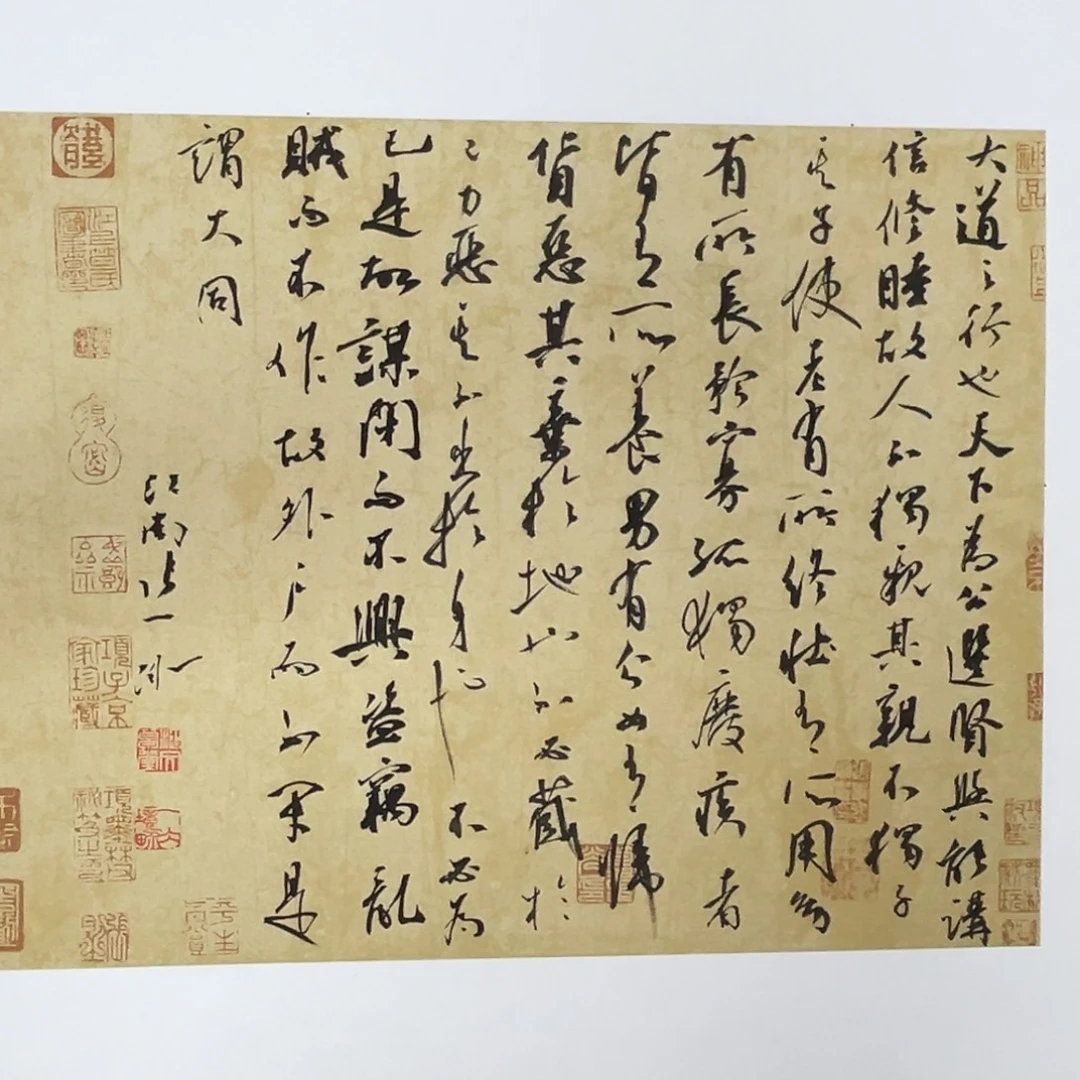 大道之行也天下為公選賢與能講
信修睦故人不獨親其親不獨子
其子使老有所終壯有所用幼
有所長矜寡孤獨廢疾者
皆有所養男有分女有歸
貨惡其棄於地也不必藏於
己力惡其不出於身也不必為
己是故謀閉而不興盜竊亂
賊而不作故外戶而不閉是
謂大同
項子京家珍藏